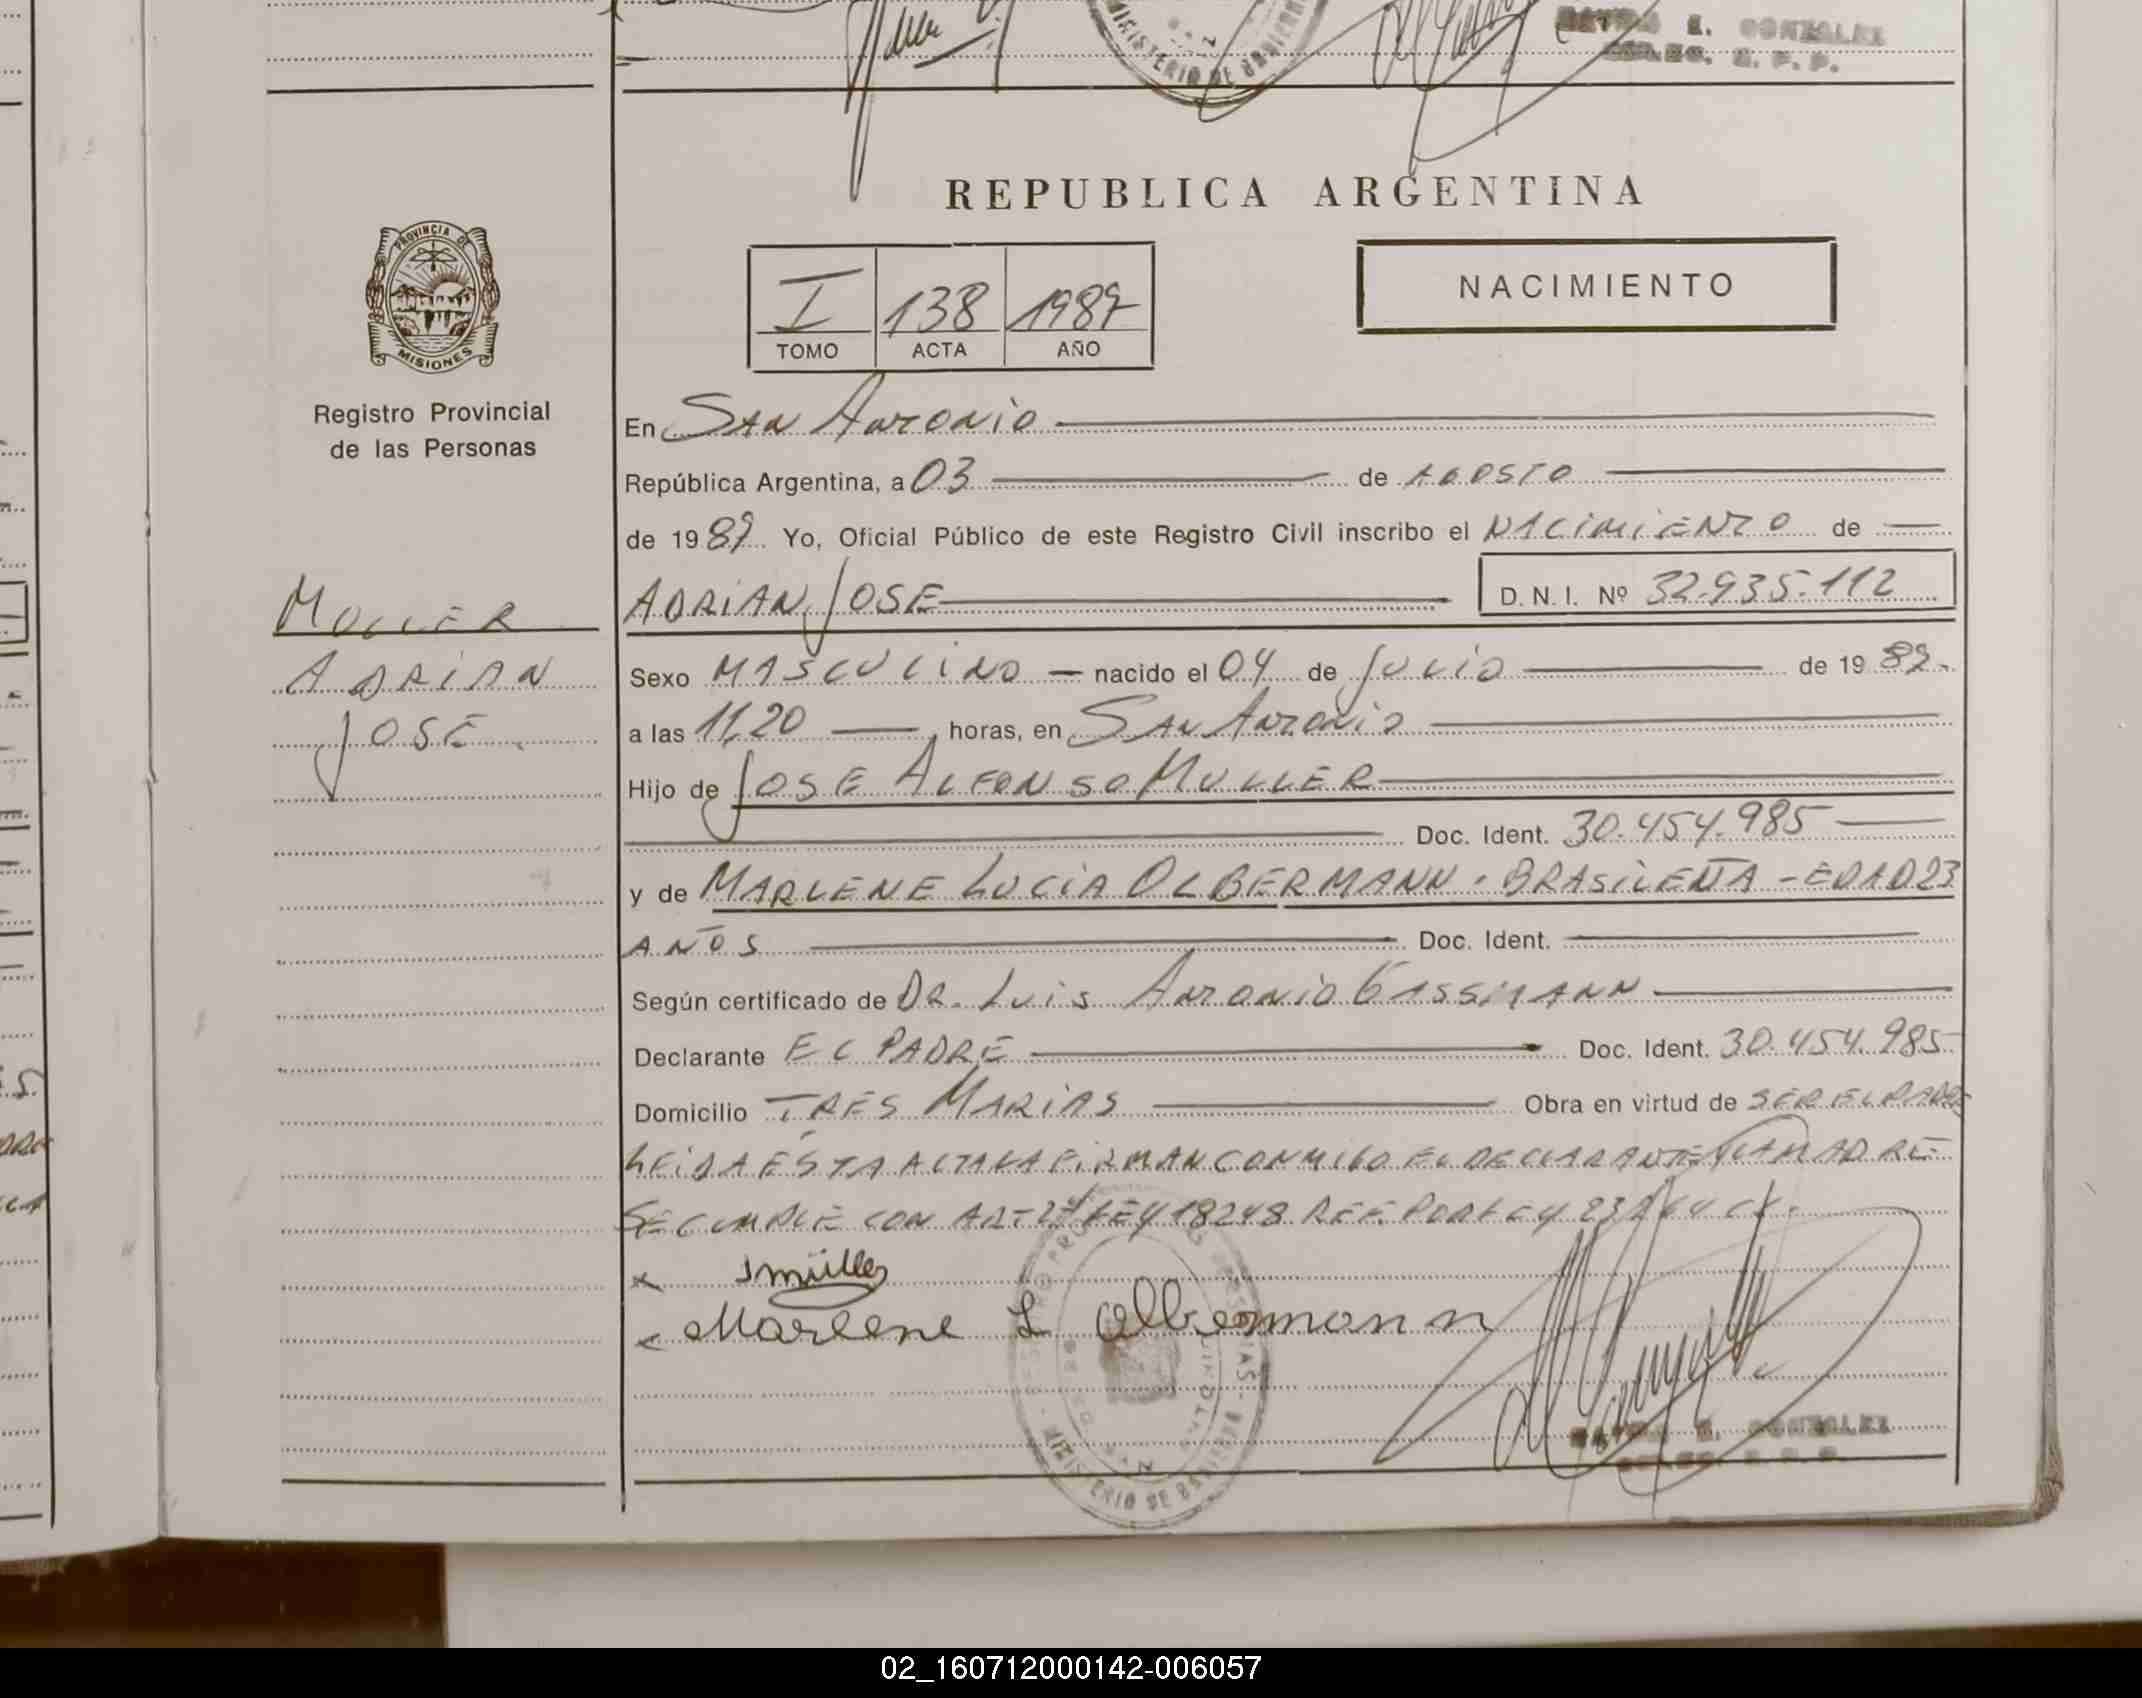 MINISTERIO DE
E. GONZALEZ
REPUBLICA ARGENTINA
PROVINCIA DE
MISIONES
I 138 1987
TOMO ACTA AÑO
NACIMIENTO
Registro Provincial
de las Personas
En SAN ANTONIO
República Argentina, a 03 de AGOSTO
de 1987 Yo, Oficial Público de este Registro Civil inscribo el NACIMIENTO de
MULLER
ADRIAN JOSE D. N. I. Nº 32.935.112
ADRIAN
Sexo MASCULINO nacido el 04 de JULIO de 19
JOSE
a las 11,20 horas, en SAN ANTONIO
Hijo de JOSE ALFONSO MULLER
Doc. Ident. 30.454.985
y de MARLENE LUCIA OLBERMANN - BRASILEÑA - EDAD 23
AÑOS Doc. Ident.
Según certificado de DR. LUIS ANTONIO GASSMANN
Declarante EL PADRE Doc. Ident. 30.454.985
Domicilio TRES MARIAS Obra en virtud de SER EL PADRE
LEIDA ESTA ACTA LA FIRMAN CONMIGO EL DECLARANTE Y LA MADRE
SE CUMPLE CON ART LEY 18248 REF. POR LEY
x J Müller
x Marlene L Olbermann
MINISTERIO DE
E. GONZALEZ
02_160712000142-006057